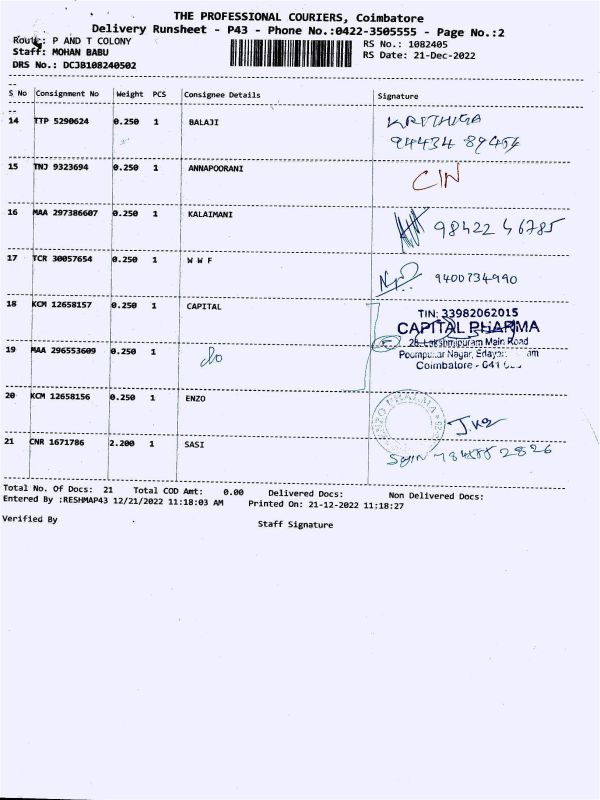 THE PROFESSIONAL COURIERS, Coimbatore
Delivery Runsheet - P43 - Phone No.:0422-3505555 - Page No.:2
Route: P AND T COLONY
RS No.: 1082405
Staff: MOHAN BABU
RS Date: 21-Dec-2022
DRS No.: DCJB108240502
S No Consignment No Weight PCS Consignee Details Signature
14 TTP 5290624 0.250 1 BALAJI KRITHIGA
94434 89454
15 TNJ 9323694 0.250 1 ANNAPOORANI CIN
16 MAA 297386607 0.250 1 KALAIMANI 98422 46785
17 TCR 30057654 0.250 1 W W F 9400734990
18 KCM 12658157 0.250 1 CAPITAL
TIN: 33982062015
CAPITAL PHARMA
28, Lakshmipuram Main Road
19 MAA 296553609 0.250 1 do
Nagar,
Coimbatore - 641
20 KCM 12658156 0.250 1 ENZO
ENZO PHARMA
21 CNR 1671786 2.200 1 SASI
Total No. Of Docs: 21 Total COD Amt: 0.00 Delivered Docs: Non Delivered Docs:
Entered By :RESHMAP43 12/21/2022 11:18:03 AM Printed On: 21-12-2022 11:18:27
Verified By Staff Signature